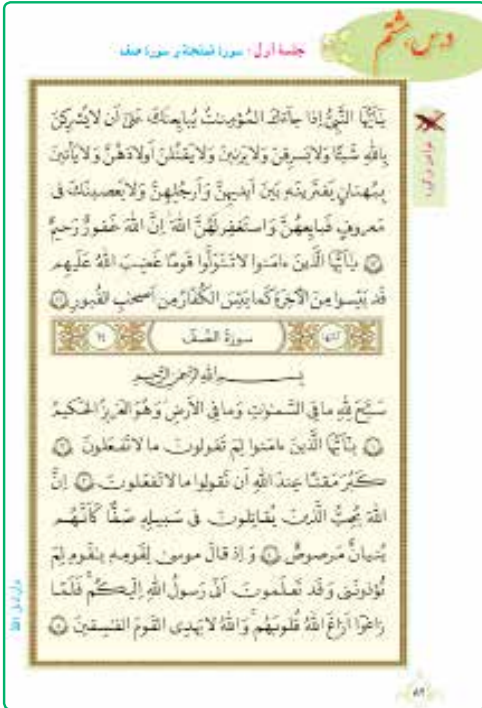 درس هشتم
جلسه اول : سوره ممتحنه و سوره صف
يَٰٓأَيُّهَا النَّبِيُّ إِذا جاءَكَ المُؤمِنٰتُ يُبايِعنَكَ عَلىٰ أَن لا يُشرِكنَ
بِاللّٰهِ شَيئًا وَلا يَسرِقنَ وَلا يَزنينَ وَلا يَقتُلنَ أَولادَهُنَّ وَلا يَأتينَ
بِبُهتانٍ يَفتَرينَهُ بَينَ أَيديهِنَّ وَأَرجُلِهِنَّ وَلا يَعصينَكَ فى
مَعروفٍ فَبايِعهُنَّ وَاستَغفِر لَهُنَّ اللّٰهَ إِنَّ اللّٰهَ غَفورٌ رَحيمٌ
١٢ يٰأَيُّهَا الَّذينَ ءامَنوا لا تَتَوَلَّوا قَومًا غَضِبَ اللّٰهُ عَلَيهِم
قَد يَئِسوا مِنَ الآخِرَةِ كَما يَئِسَ الكُفّارُ مِن أَصحٰبِ القُبورِ ١٣
سورة الصّف ١٤
بسم الله الرحمن الرحيم
سَبَّحَ لِلّٰهِ ما فِى السَّمٰوٰتِ وَما فِى الأَرضِ وَهُوَ العَزيزُ الحَكيمُ
١ يٰأَيُّهَا الَّذينَ ءامَنوا لِمَ تَقولونَ ما لا تَفعَلونَ ٢
كَبُرَ مَقتًا عِندَ اللّٰهِ أَن تَقولوا ما لا تَفعَلونَ ٣ إِنَّ
اللّٰهَ يُحِبُّ الَّذينَ يُقاتِلونَ فى سَبيلِهِ صَفًّا كَأَنَّهُم
بُنيانٌ مَرصوصٌ ٤ وَإِذ قالَ موسىٰ لِقَومِهِ يٰقَومِ لِمَ
تُؤذونَنى وَقَد تَعلَمونَ أَنّى رَسولُ اللّٰهِ إِلَيكُم فَلَمّا
زاغوا أَزاغَ اللّٰهُ قُلوبَهُم وَاللّٰهُ لا يَهدِى القَومَ الفٰسِقينَ ٥
٨٩